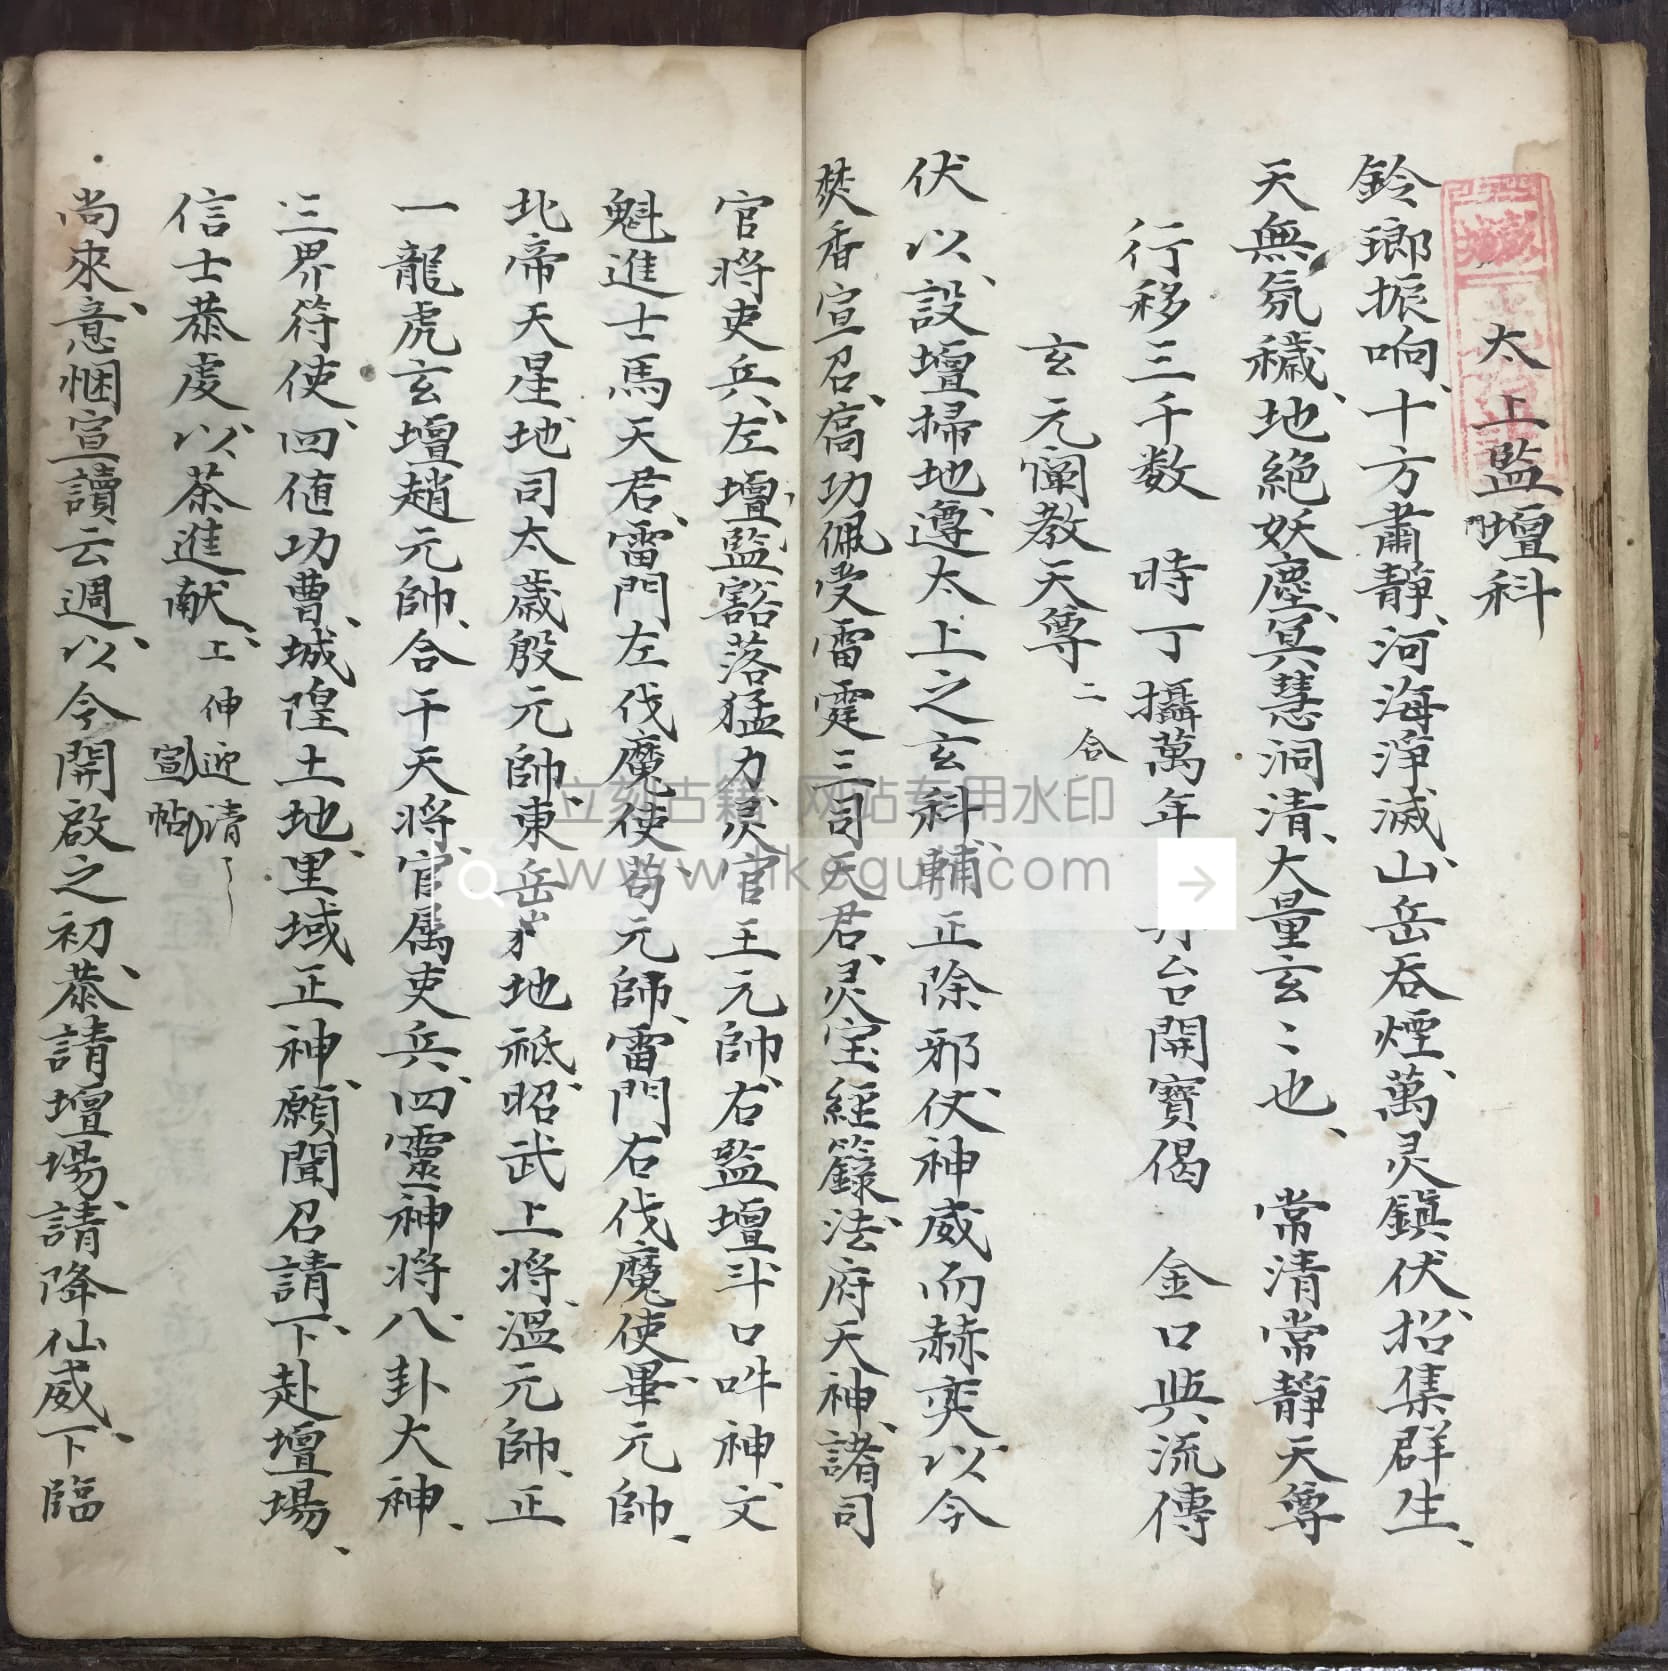 太上監壇科
鈴瑯振响、十方肅靜、河海淨滅、山岳吞煙、萬灵鎮伏、招集群生、
天無氛穢、地絕妖塵、冥慧洞清、大量玄〻也、 常清常靜天尊
行移三千数 時丁攝萬年 台開寶偈 金口與流傳
玄元闡教天尊 二合
伏以、設壇掃地、遵太上之玄科、輔正除邪、仗神威而赫奕、以今
焚香宣召、高功佩受雷霆三司天君、灵宝經籙法府天神、諸司
官将吏兵、左壇監豁落猛力灵官王元帥、右監壇斗口吽神、文
魁進士馬天君、雷門左伐魔使苟元帥、雷門右伐魔使畢元帥、
北帝天星地司太歲殷元帥、東岳地祇昭武上将、溫元帥、正
一龍虎玄壇趙元帥、合干天将、官属吏兵、四靈神将、八卦大神、
三界符使、四值功曹、城隍土地、里域正神、願聞召請下、赴壇場、
信士恭虔、以茶進献、上 伸迎請 宣帖
尚來意悃宣讀云週、以今開啟之初、恭請壇場、請降仙威、下臨
立刻古籍 网站专用水印